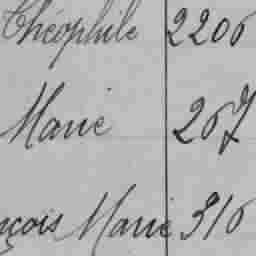 Théophile 2206
Marie 267
nçois Marie 316